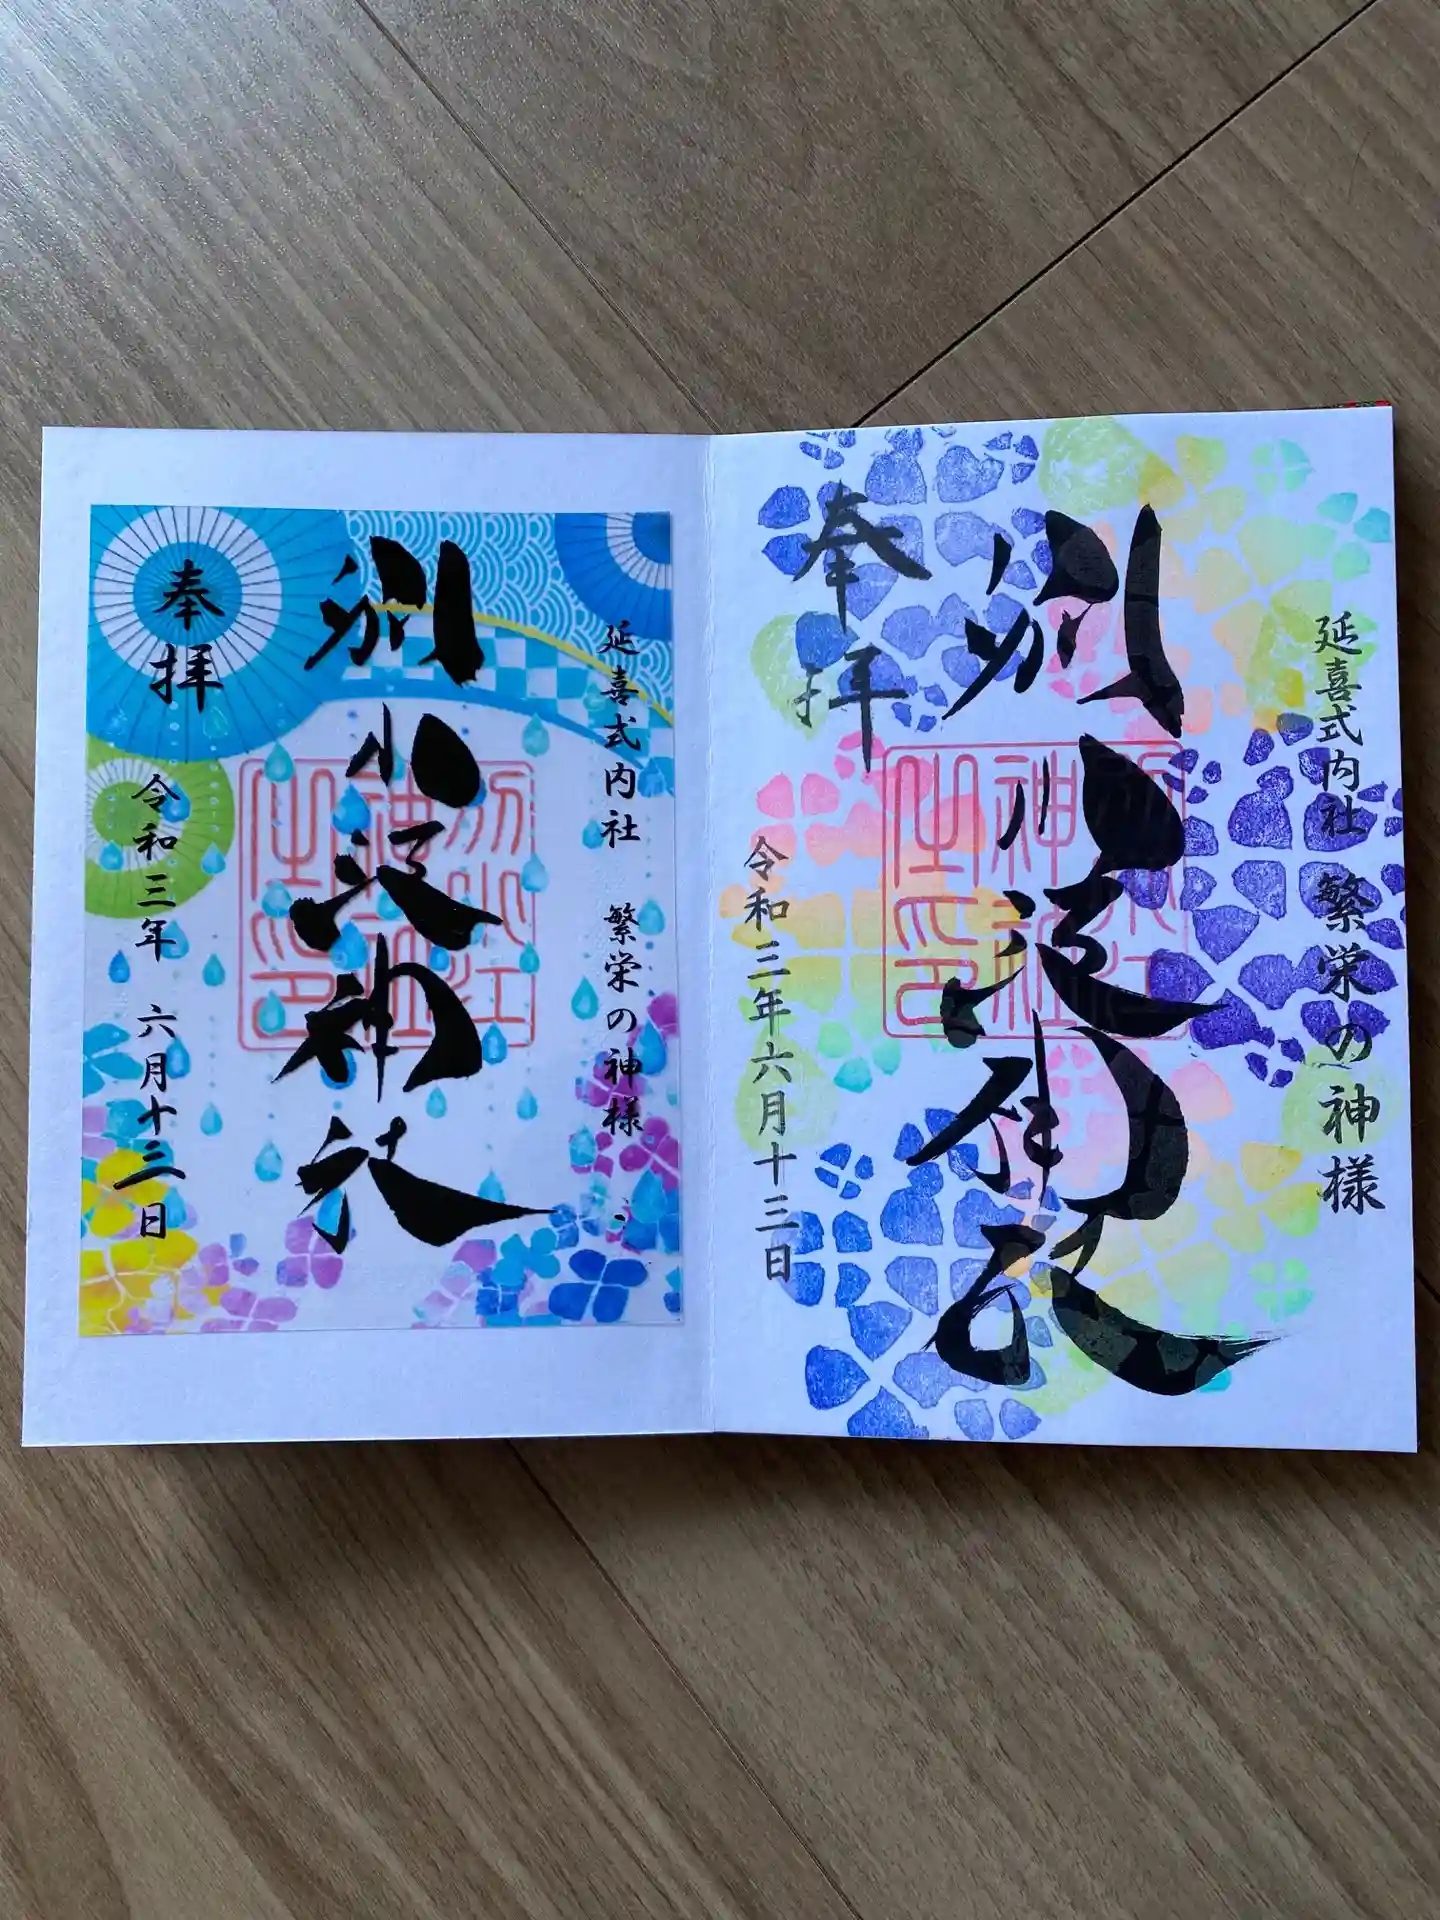 延喜式内社 繁栄の神様
別小江神社
別小江
神社
之印
奉拝
令和三年六月十三日
延喜式内社 繁栄の神様
別小江神社
別小江
神社
之印
奉拝
令和三年 六月十三日